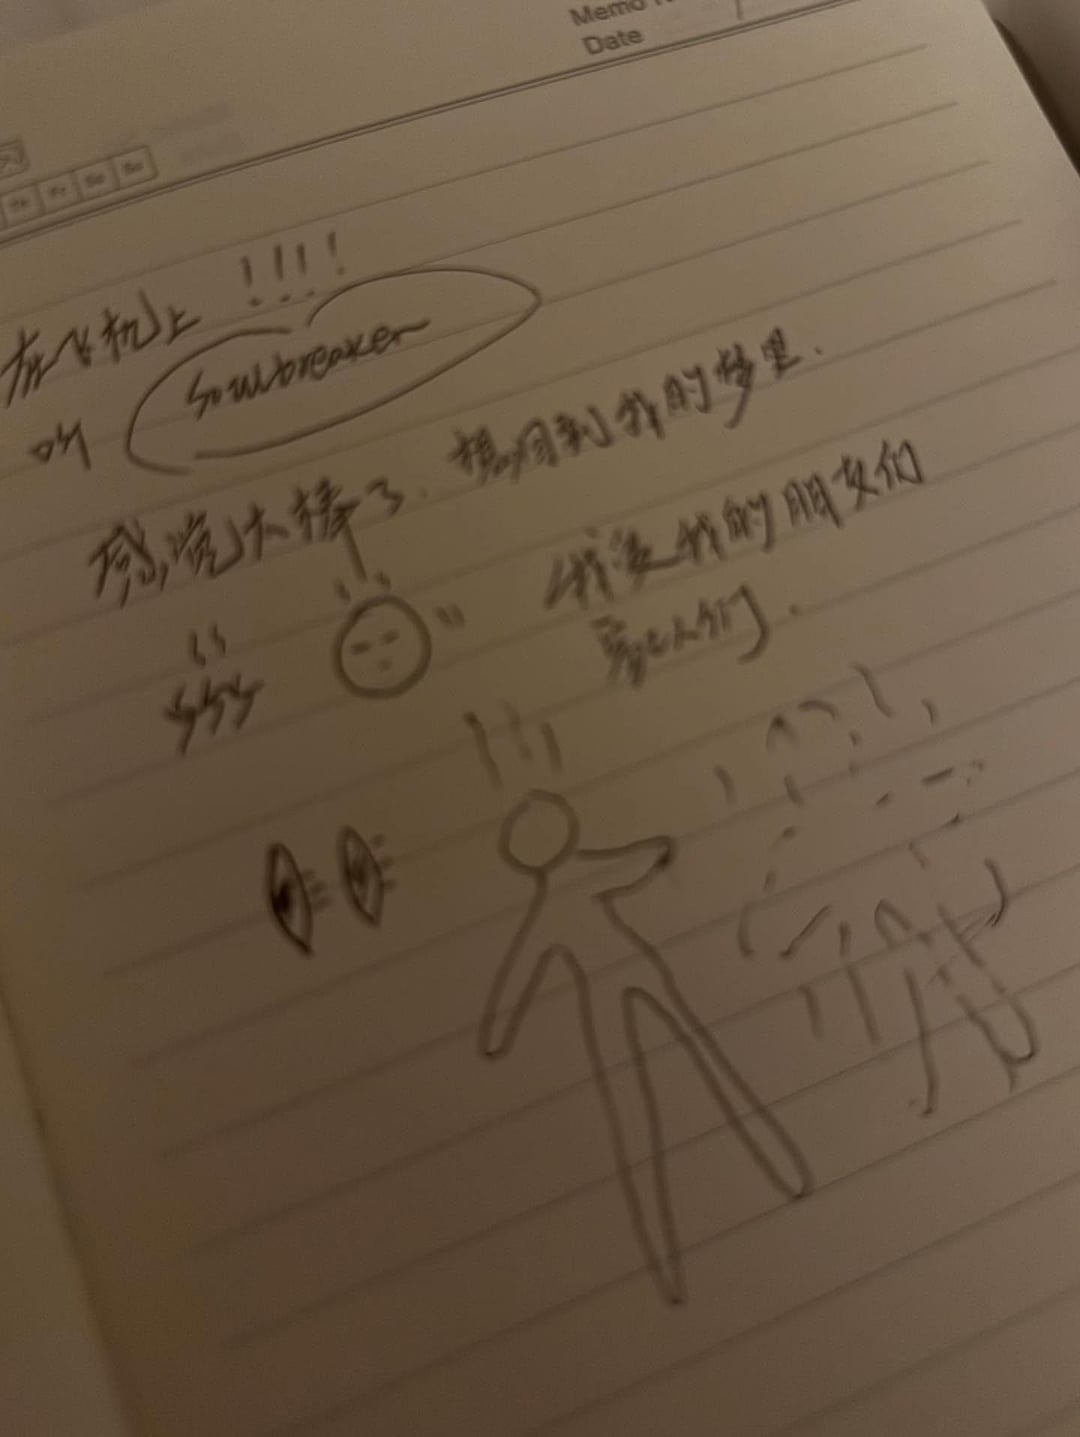 Memo
Date
在飞机上 !!!!
听 Soulbreaker
感觉太棒了. 想回到我的梦里.
我没我的朋友们
爱人们.